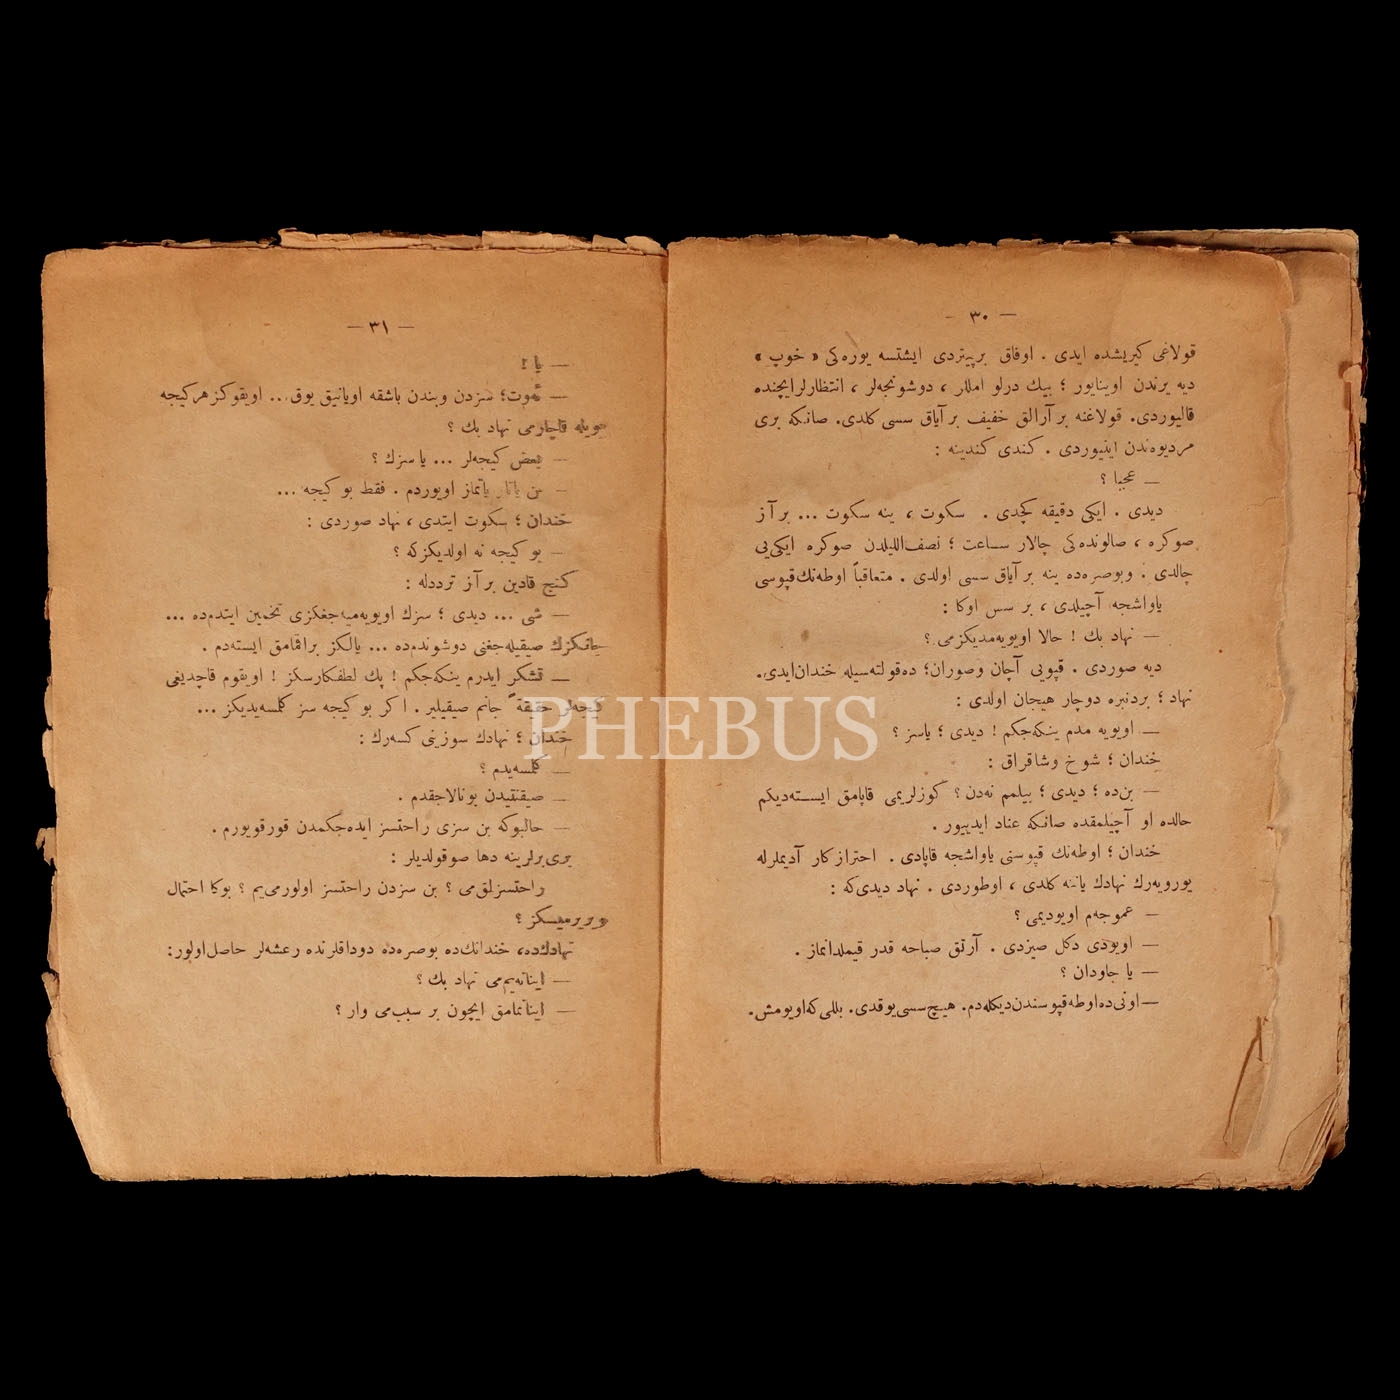 — ٣٠ —
قولاغی كیریشده ایدی . اوفاق بر پیتردی ایشتسه یوره‌كی « خوپ »
دیه یرندن اوینایور ؛ بیك درلو امللر ، دوشونجه‌لر ، انتظارلر ایچنده
قالیوردی. قولاغنه بر آرالق خفیف بر آیاق سسی كلدی. صانكه بری
مردیوه‌ندن اینیوردی . كندی كندینه :
— عجبا ؟
دیدی . ایكی دقیقه كچدی . سكوت ، ینه سكوت ... بر آز
صوكره ، صالونده‌كی چالار ساعت ؛ نصف‌اللیلدن صوكره ایكی‌یی
چالدی . وبوصره‌ده ینه بر آیاق سسی اولدی . متعاقباً اوطه‌نك قپوسی
یاواشجه آچیلدی ، بر سس اوكا :
— نهاد بك ! حالا اویویه‌مدیكزمی ؟
دیه صوردی . قپویی آچان وصوران؛ ده‌قولته‌سیله خندان‌ایدی.
نهاد ؛ بردنبره دوچار هیجان اولدی :
— اویویه مدم ینكه‌جكم ! دیدی ؛ یاسز ؟
خندان ؛ شوخ وشاقراق :
— بن‌ده ؛ دیدی ؛ بیلمم نه‌دن ؟ كوزلریمی قاپامق ایسته‌دیكم
حالده او آچیلمقده صانكه عناد ایدییور .
خندان ؛ اوطه‌نك قپوسنی یاواشجه قاپادی . احترازكار آدیملرله
یورویه‌رك نهادك یاننه كلدی ، اوطوردی . نهاد دیدی‌كه :
— عموجه‌م اویودیمی ؟
— اویودی دكل صیزدی . آرتق صباحه قدر قیملدانماز .
— یا جاودان ؟
— اونی‌ده اوطه قپوسندن دیكله‌دم. هیچ سسی یوقدی. بللی كه اویومش.
— ٣١ —
— یا !
— ئه‌وت؛ سزدن وبندن باشقه اویانیق یوق... اویقوكز هركیجه
بویله قاچارمی نهاد بك ؟
— بعض كیجه‌لر ... یا سزك ؟
— بن یاتار یاتماز اویوردم . فقط بو كیجه ...
خندان ؛ سكوت ایتدی ، نهاد صوردی :
— بو كیجه نه اولدیكزكه ؟
كنج قادین بر آز ترددله :
— شی ... دیدی ؛ سزك اویویه‌میه‌جغكزی تخمین ایتدم‌ده ...
جانكزك صیقیله‌جغنی دوشوندم‌ده ... یالكز براقمامق ایسته‌دم .
— تشكر ایدرم ینكه‌جكم ! پك لطفكارسكز ! اویقوم قاچدیغی
كیجه‌لر حقیقةً جانم صیقیلیر . اكر بو كیجه سز كلمسه‌یدیكز ...
خندان ؛ نهادك سوزینی كسه‌رك :
— كلمسه‌یدم ؟
— صیقنتیدن بوناالاجقدم .
— حالبوكه بن سزی راحتسز ایده‌جكمدن قورقویورم .
بری‌برلرینه دها صوقولدیلر :
راحتسزلق‌می ؟ بن سزدن راحتسز اولورمی‌یم ؟ بوكا احتمال
ویریرمیسكز ؟
نهادك‌ده، خندانك‌ده بوصره‌ده دوداقلرنده رعشه‌لر حاصل‌اولور:
— اینانه‌یم‌می نهاد بك ؟
— اینانمامق ایچون بر سبب‌می وار ؟
PHEBUS